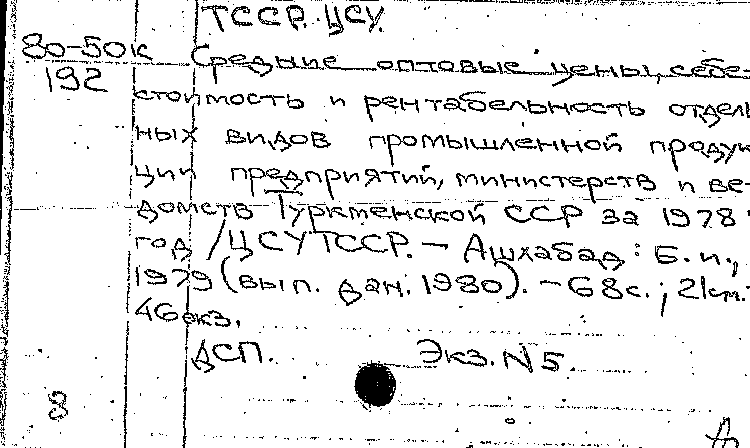 ТССР. ЦСУ.
80-50к Средние оптовые цены, себе-
192
стоимость и рентабельность отдель
ных видов промышленной продук
ции предприятий, министерств и ве-
домств Туркменской ССР за 1978
год / ЦСУ ТССР. — Ашхабад : Б. и.,
1979 (вып. дан. 1980). — 68с. ; 21см.
46экз.
ДСП. Экз. N 5.
8